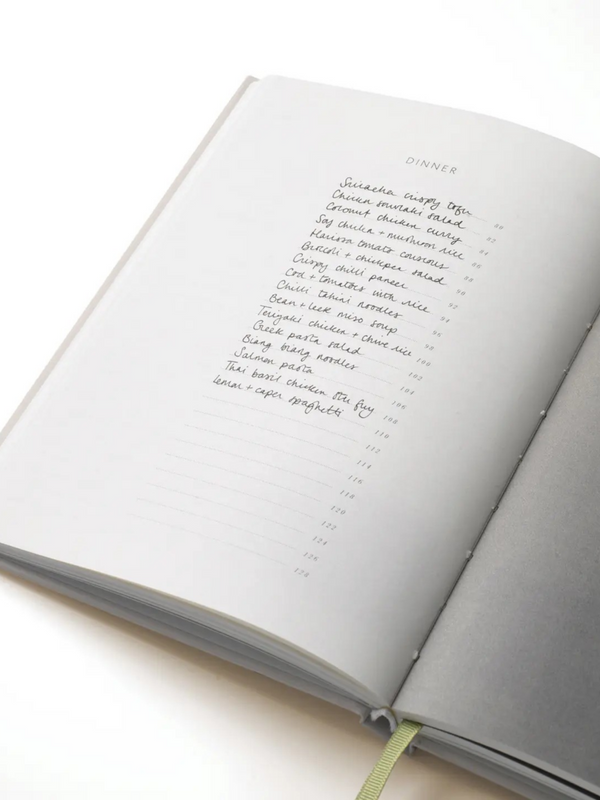 DINNER
Sriracha crispy tofu 80
Chicken souvlaki salad 82
Coconut chicken curry 84
Soy chicken + mushroom rice 86
Harissa tomato couscous 88
Broccoli + chickpea salad 90
Crispy chilli paneer 92
Cod + tomatoes with rice 94
Chilli tahini noodles 96
Bean + leek miso soup 98
Teriyaki chicken + chive rice 100
Greek pasta salad 102
Biang biang noodles 104
Salmon pasta 106
Thai basil chicken stir fry 108
Lemon + caper spaghetti 110
112
114
116
118
120
122
124
126
128